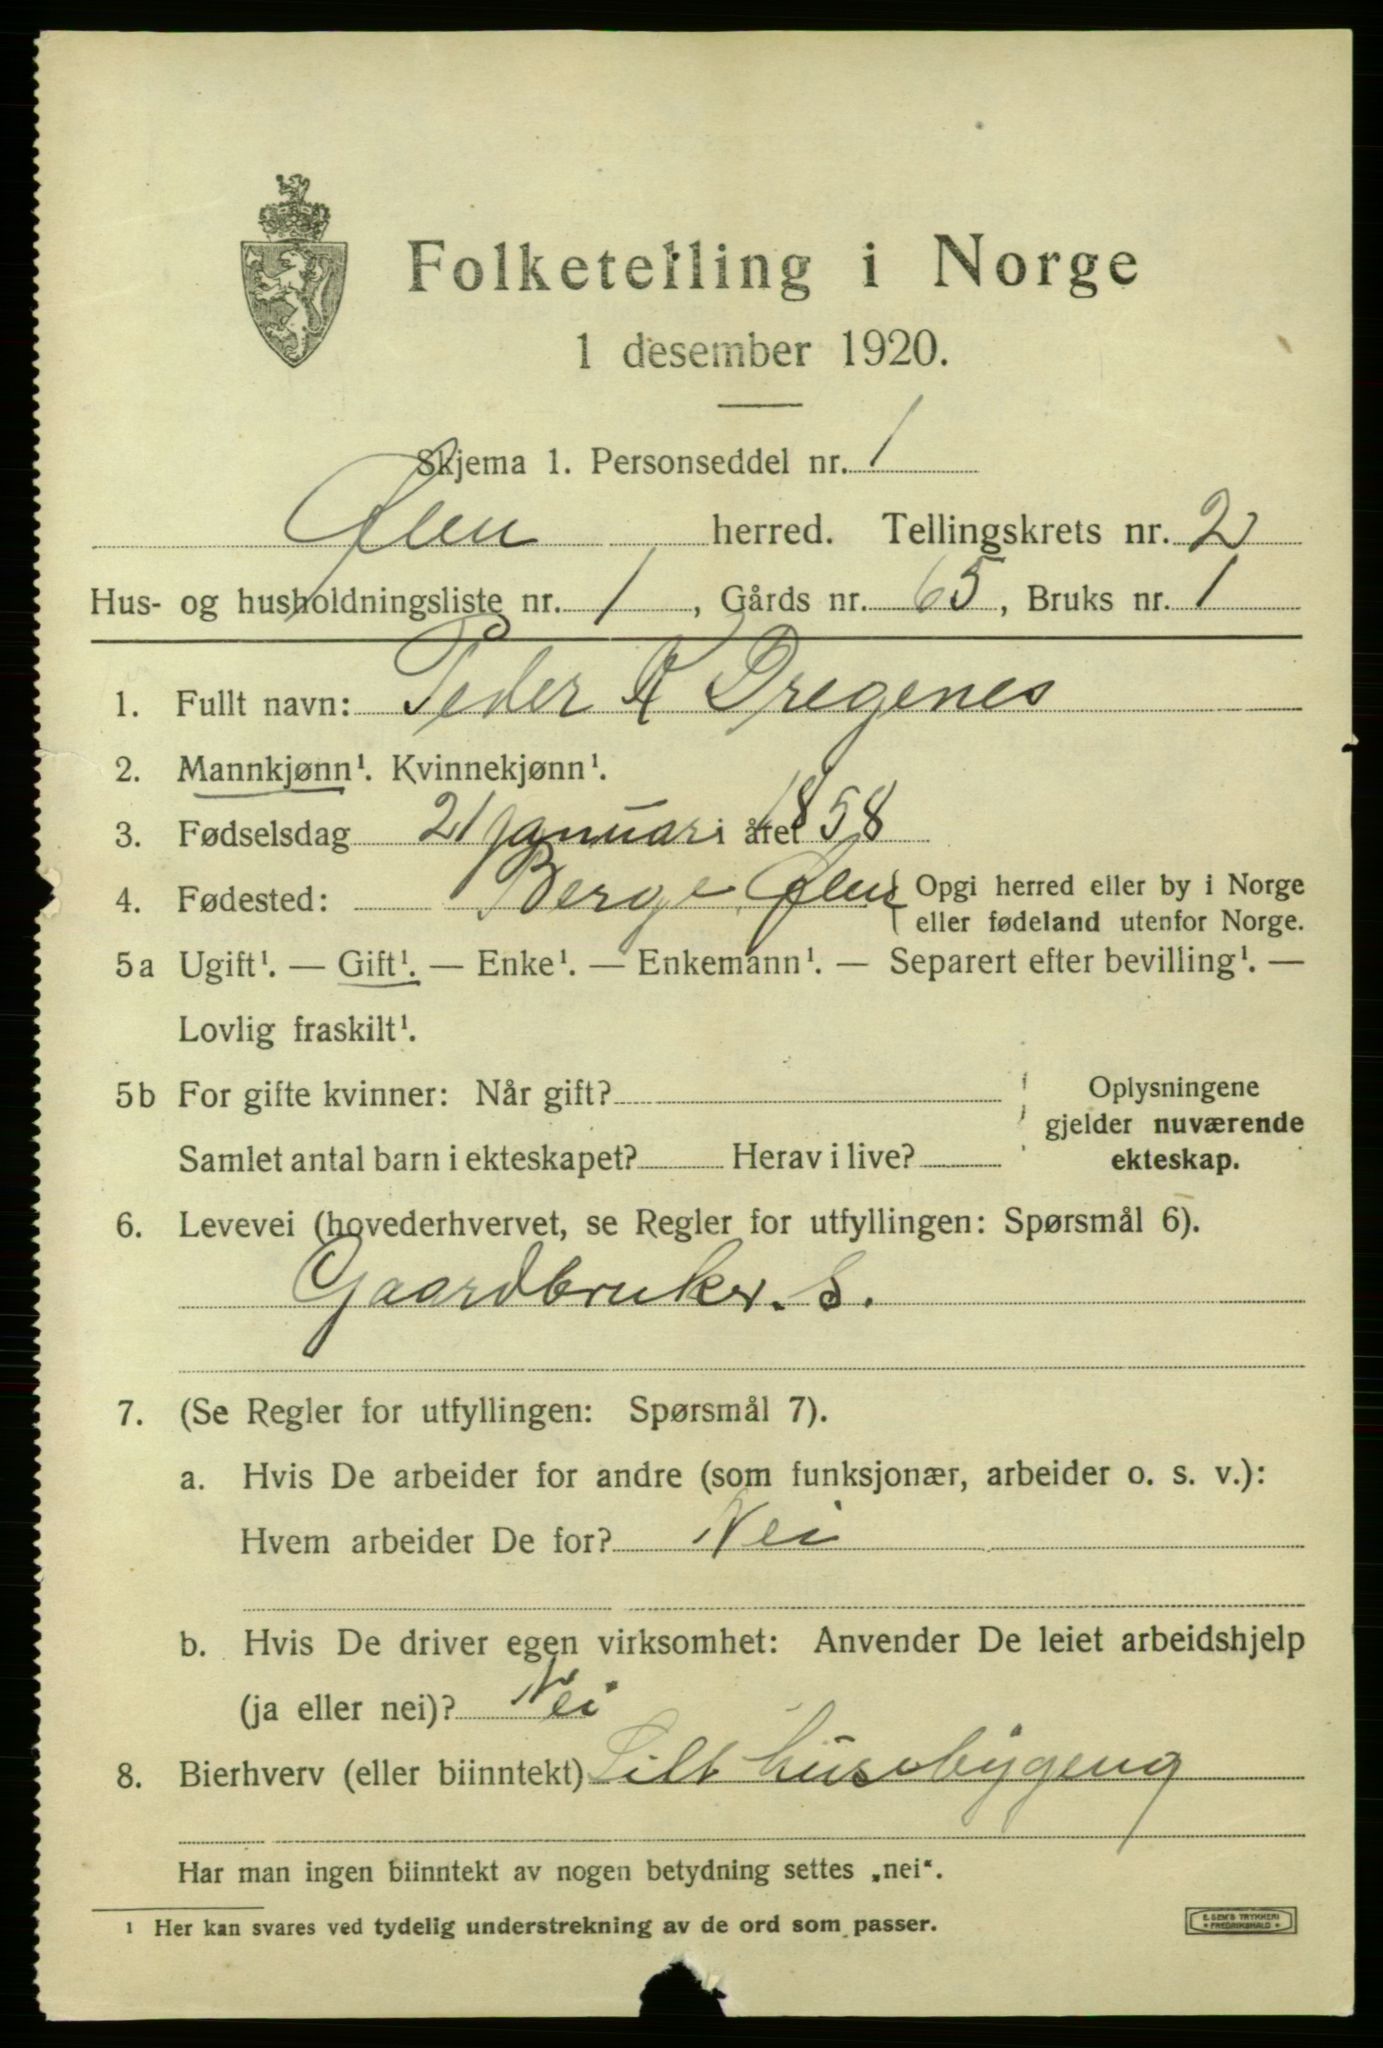 Folketelling i Norge
1 desember 1920.
Skjema 1. Personseddel nr. 1
Ølen herred. Tellingskrets nr. 2
Hus- og husholdningsliste nr. 1, Gårds nr. 65, Bruks nr. 1
1. Fullt navn: Peder A Dregenes
2. Mannkjønn¹. Kvinnekjønn¹.
3. Fødselsdag 21 januar i året 1858
4. Fødested: Berge Ølen Opgi herred eller by i Norge
eller fødeland utenfor Norge.
5a Ugift¹. — Gift¹. — Enke¹. — Enkemann¹. — Separert efter bevilling¹. —
Lovlig fraskilt¹.
5b For gifte kvinner: Når gift? Oplysningene
gjelder nuværende
Samlet antal barn i ekteskapet? Herav i live? ekteskap.
6. Levevei (hovederhvervet, se Regler for utfyllingen: Spørsmål 6).
Gaardbruker. S.
7. (Se Regler for utfyllingen: Spørsmål 7).
a. Hvis De arbeider for andre (som funksjonær, arbeider o. s. v.):
Hvem arbeider De for? Nei
b. Hvis De driver egen virksomhet: Anvender De leiet arbeidshjelp
(ja eller nei)? Nei
8. Bierhverv (eller biinntekt) husebygeng
Har man ingen biinntekt av nogen betydning settes „nei“.
¹ Her kan svares ved tydelig understrekning av de ord som passer.
E. SEM'S TRYKKERI
* FREDRIKSHALD *